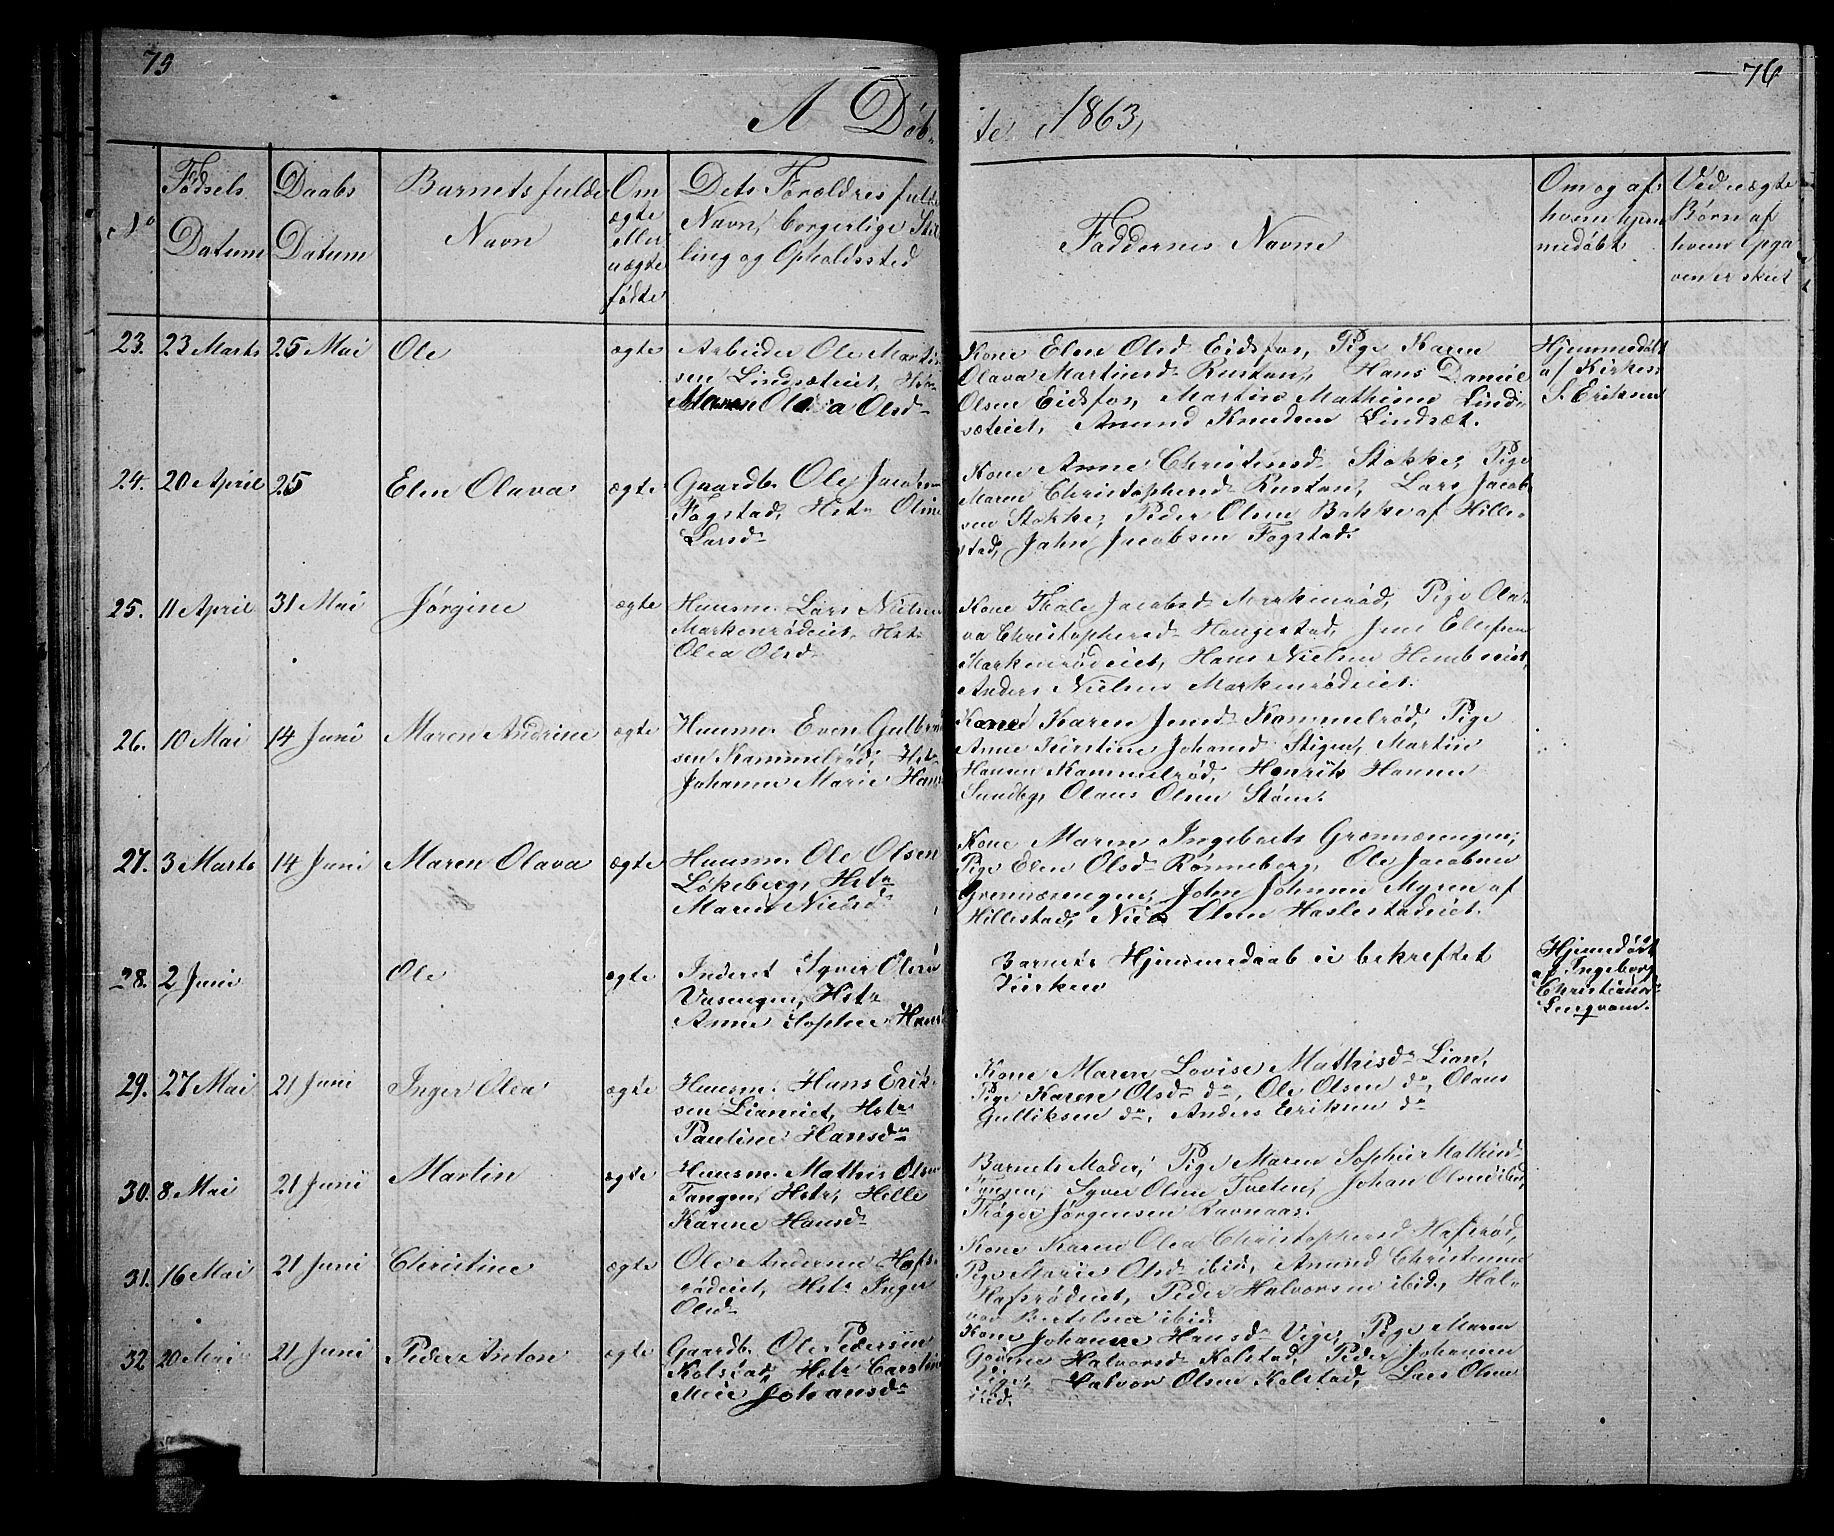 75
76
A Døb-
te, 1863,
No
Fødsels
Datum
Daabs
Datum
Barnets fulde
Navn
Om
ægte
eller
uægte
fødte
Dets Forældres fulde
Navn, borgerlige Stil
ling og Opholdssted
Faddernes Navne
Om og af
hvem hjem
medøbt
Ved uægte
Børn af
hvem Opga
ven er skeet
23. 23 Marts 25 Mai Ole ægte
Arbeider Ole Marti
sen Lindsæteiet, Hst
Maren Olava Olsd
Kone Elen Olsd Eidsfos, Pige Karen
Olava Martinsd Rustan, Hans Daniel
Olsen Eidsfos, Martin Mathisen Lind
sæteiet, Amund Knudsen Lindsæt.
Hjemmedøbt
af Kirkes:
S. Eriksen
24. 20 April 25 Elen Olava ægte
Gaardb. Ole Jacobsen
Fogstad, Hst Oline
Larsd
Kone Anne Christensd Stokke, Pige
Maren Christophersd Rustan, Lars Jacob
sen Stokke, Peder Olsen Bakke af Hille-
stad, John Jacobsen Fogstad.
25. 11 April 31 Mai Jørgine ægte
Huusm. Lars Nielsen
Markenrødeiet, Hst
Olea Olsd
Kone Thale Jacobsd Markenrød, Pige Ola-
va Christophersd Haugestad, Jens Ellefsen
Markenrødeiet, Hans Nielsen
Anders Nielsen Markenrødeiet.
26. 10 Mai 14 Juni Maren Andrine ægte
Huusm. Even Gulbrand
sen Kammelrød, Hst
Johanne Marie Hans
Kone Karen Jensd Kammelrød, Pige
Anne Kirstine Johansd Stigen, Martin
Hansen Kammelrød, Henrik Hansen
Sundby, Olaus Olsen
27. 3 Marts 14 Juni Maren Olava ægte
Huusm. Ole Olsen
Løkeberg, Hst
Maren Nielsd
Kone Maren Ingebrets Grønnærengen,
Pige Elen Olsd Rønneberg, Ole Jacobsen
John Johnsen Myren af
Hillestad, Niels Olsen Haslestadeiet.
28. 2 Juni Ole ægte
Inderst Syver Olsen
Vasengen, Hst
Anne Sophie Hans
Barnets Hjemmedaab ei bekreftet
Kirken
Hjemmedøbt
af Ingeborg
Christiansd
29. 27 Mai 21 Juni Inger Olea ægte
Huusm. Hans Erik
sen Lianeiet, Hst
Pauline Hansd
Kone Maren Lovise Mathisd Lian,
Pige Karen Olsd do, Ole Olsen do, Olaus
Gulliksen do, Anders Eriksen do
30. 8 Mai 21 Juni Martin ægte
Huusm. Mathis Olsen
Tangen, Hstr, Helle
Karine Hansd
Barnets Moder, Pige Maren Sophie Mathisd
Tangen, Syver Olsen Tveten, Johan Olsen ibid,
Thøger Jørgensen Ravnaas.
31. 16 Mai 21 Juni Christine ægte
Ole Andersen Hafs
rødeiet, Hstr Inger
Olsd
Kone Karen Olea Christophersd Hafsrød,
Pige Marie Olsd ibid, Amund Christensen
Hafsrødeiet, Peder Halvorsen ibid, Hal-
vor Bertelsen ibid.
32 20 Mai 21 Juni Peder Anton ægte
Gaardb. Ole Pedersen
Kolstad, Hstr Carstine
Johansd
Kone Johanne Hansd Vige, Pige Maren
Halvorsd Kolstad, Peder Johansen
Vige, Halvor Olsen Kolstad, Lars Olsen
ibid.